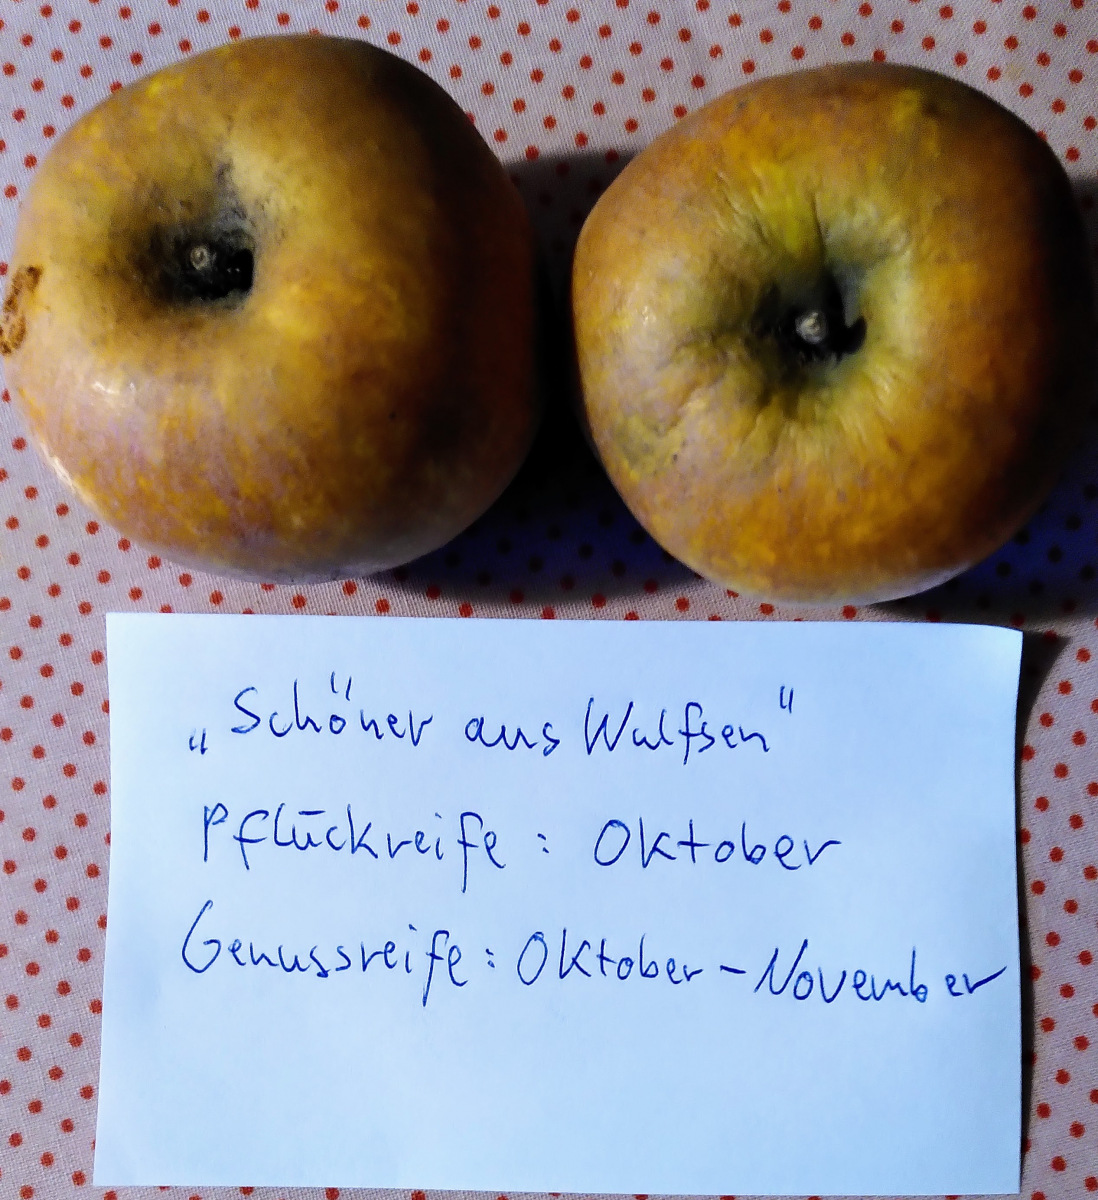 „Schöner aus Wulfsen"
Pflückreife: Oktober
Genussreife: Oktober-November